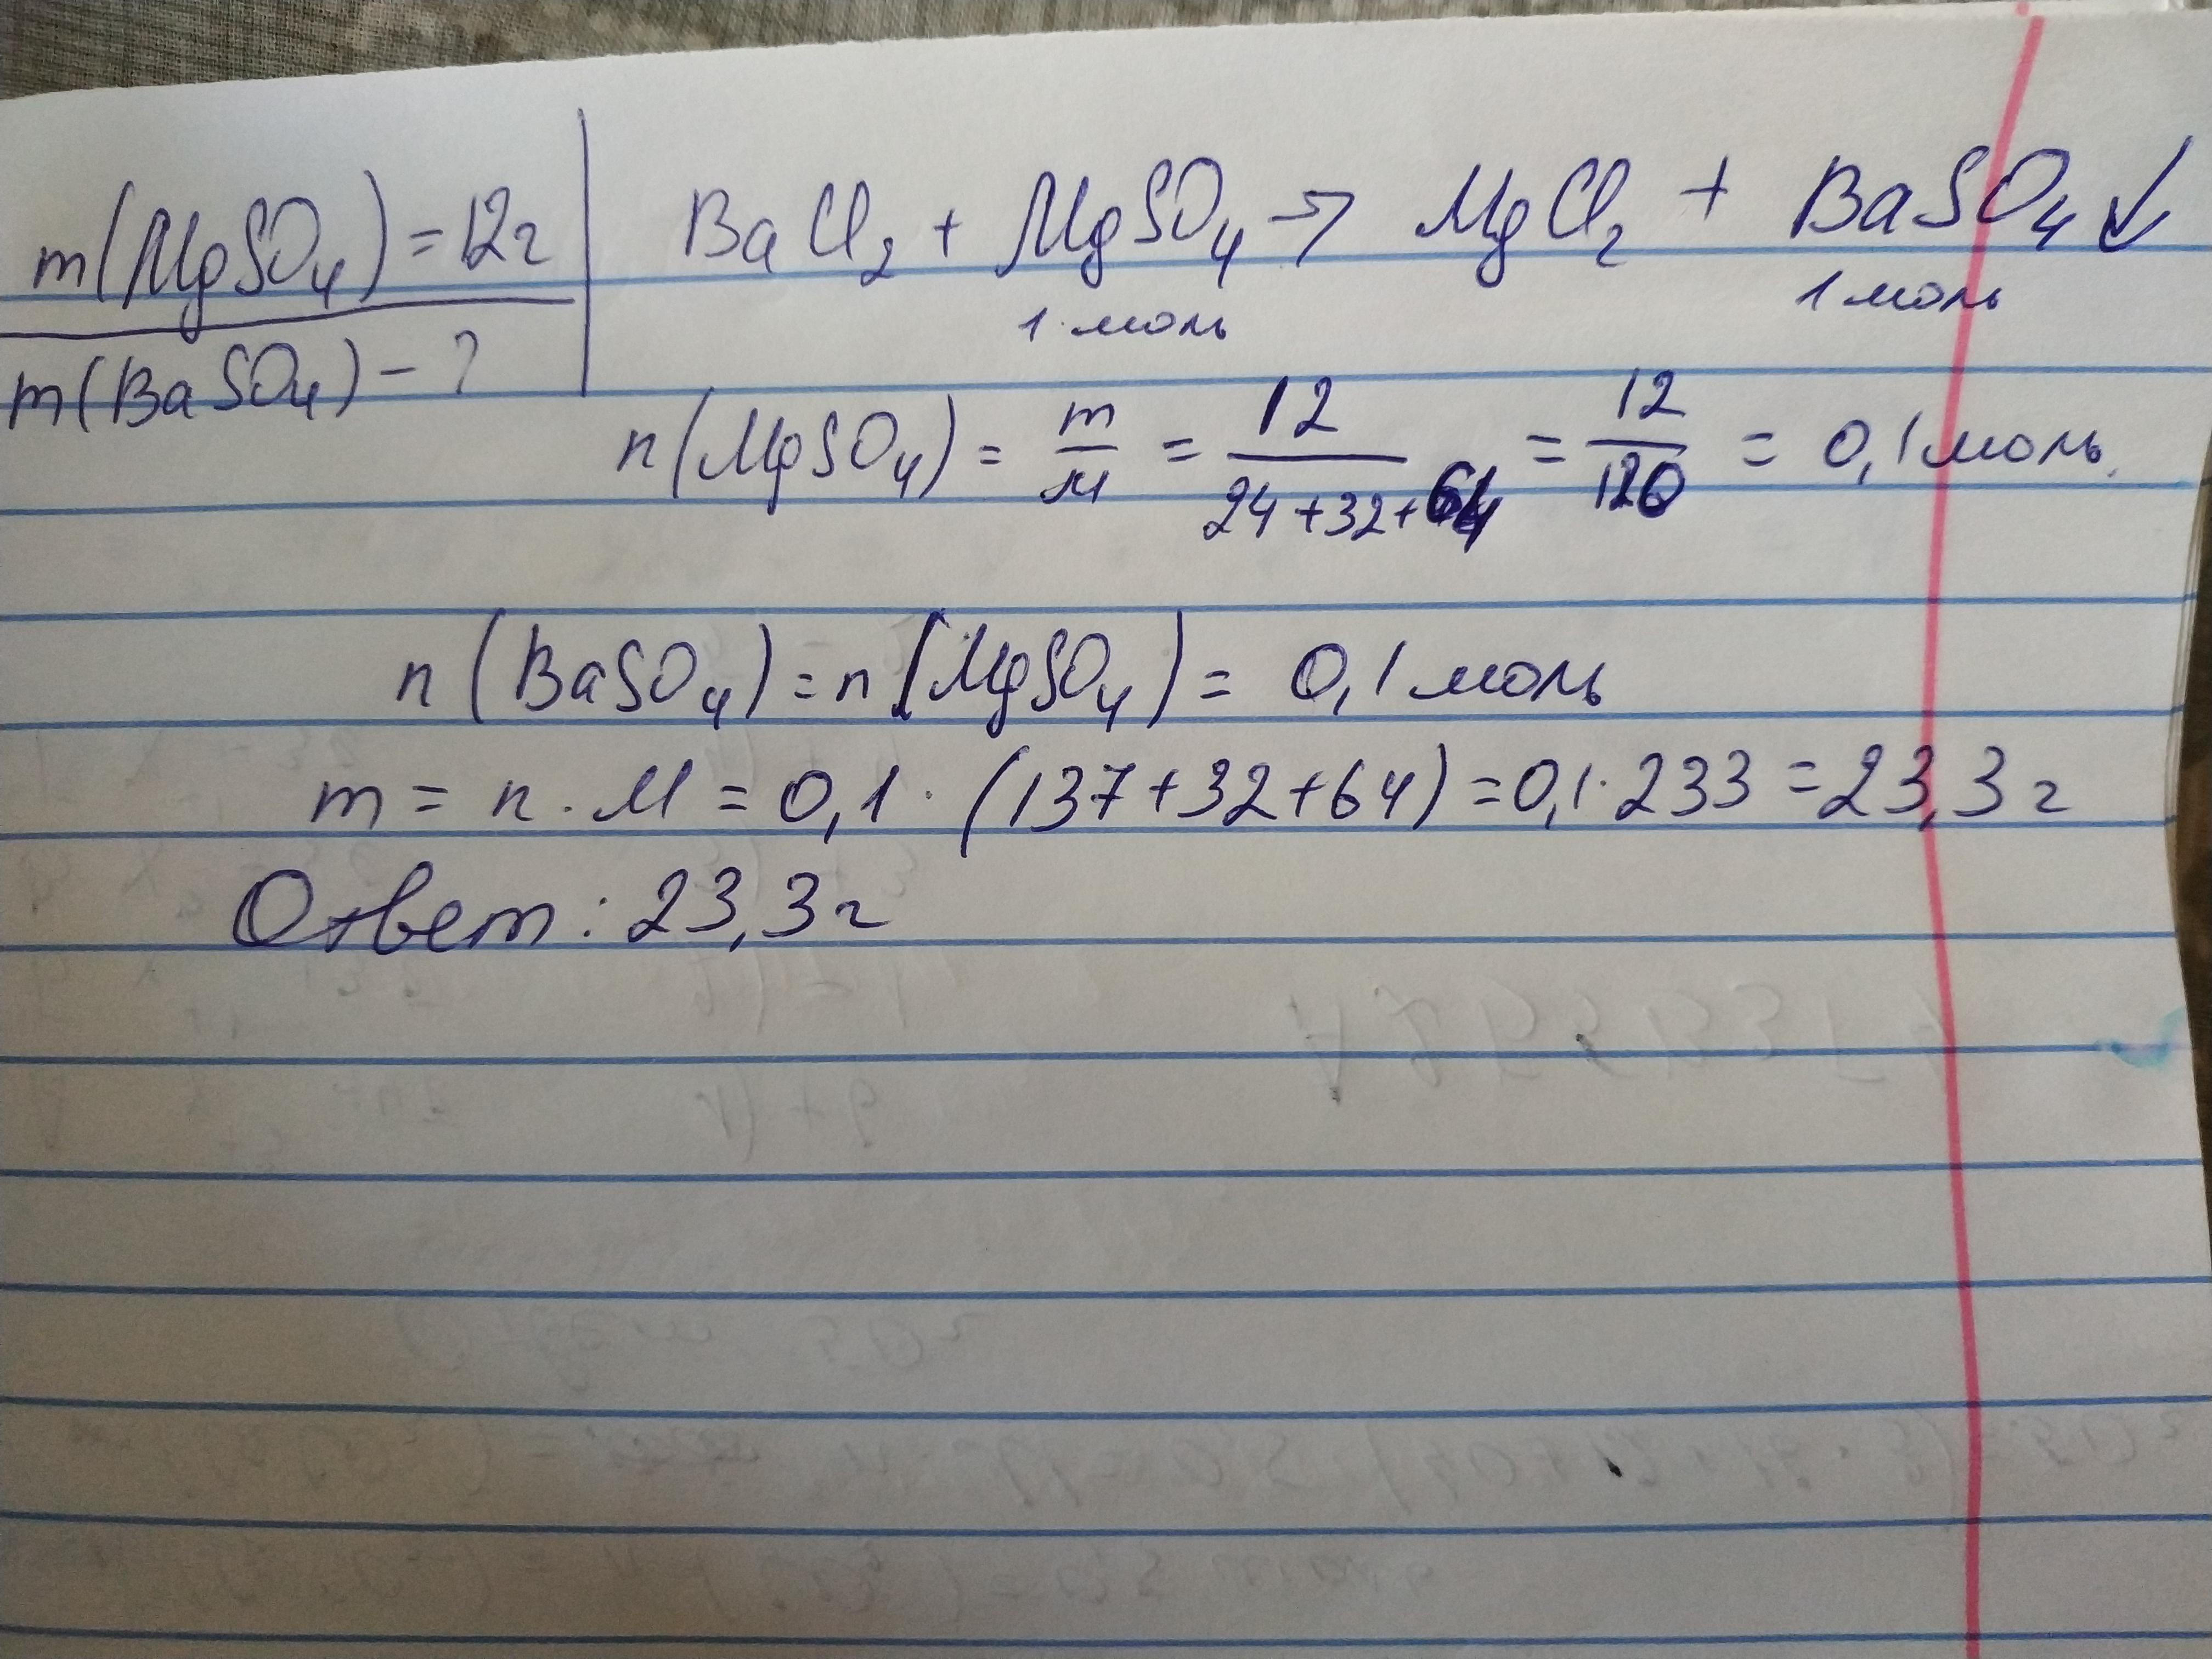 m(MgSO₄) = 12г
m(BaSO₄) - ?
BaCl₂ + MgSO₄ → MgCl₂ + BaSO₄↓
1 моль 1 моль
n(MgSO₄) = m/M = 12/(24+32+64) = 12/120 = 0,1 моль.
n(BaSO₄) = n(MgSO₄) = 0,1 моль
m = n · M = 0,1 · (137+32+64) = 0,1 · 233 = 23,3 г
Ответ: 23,3 г